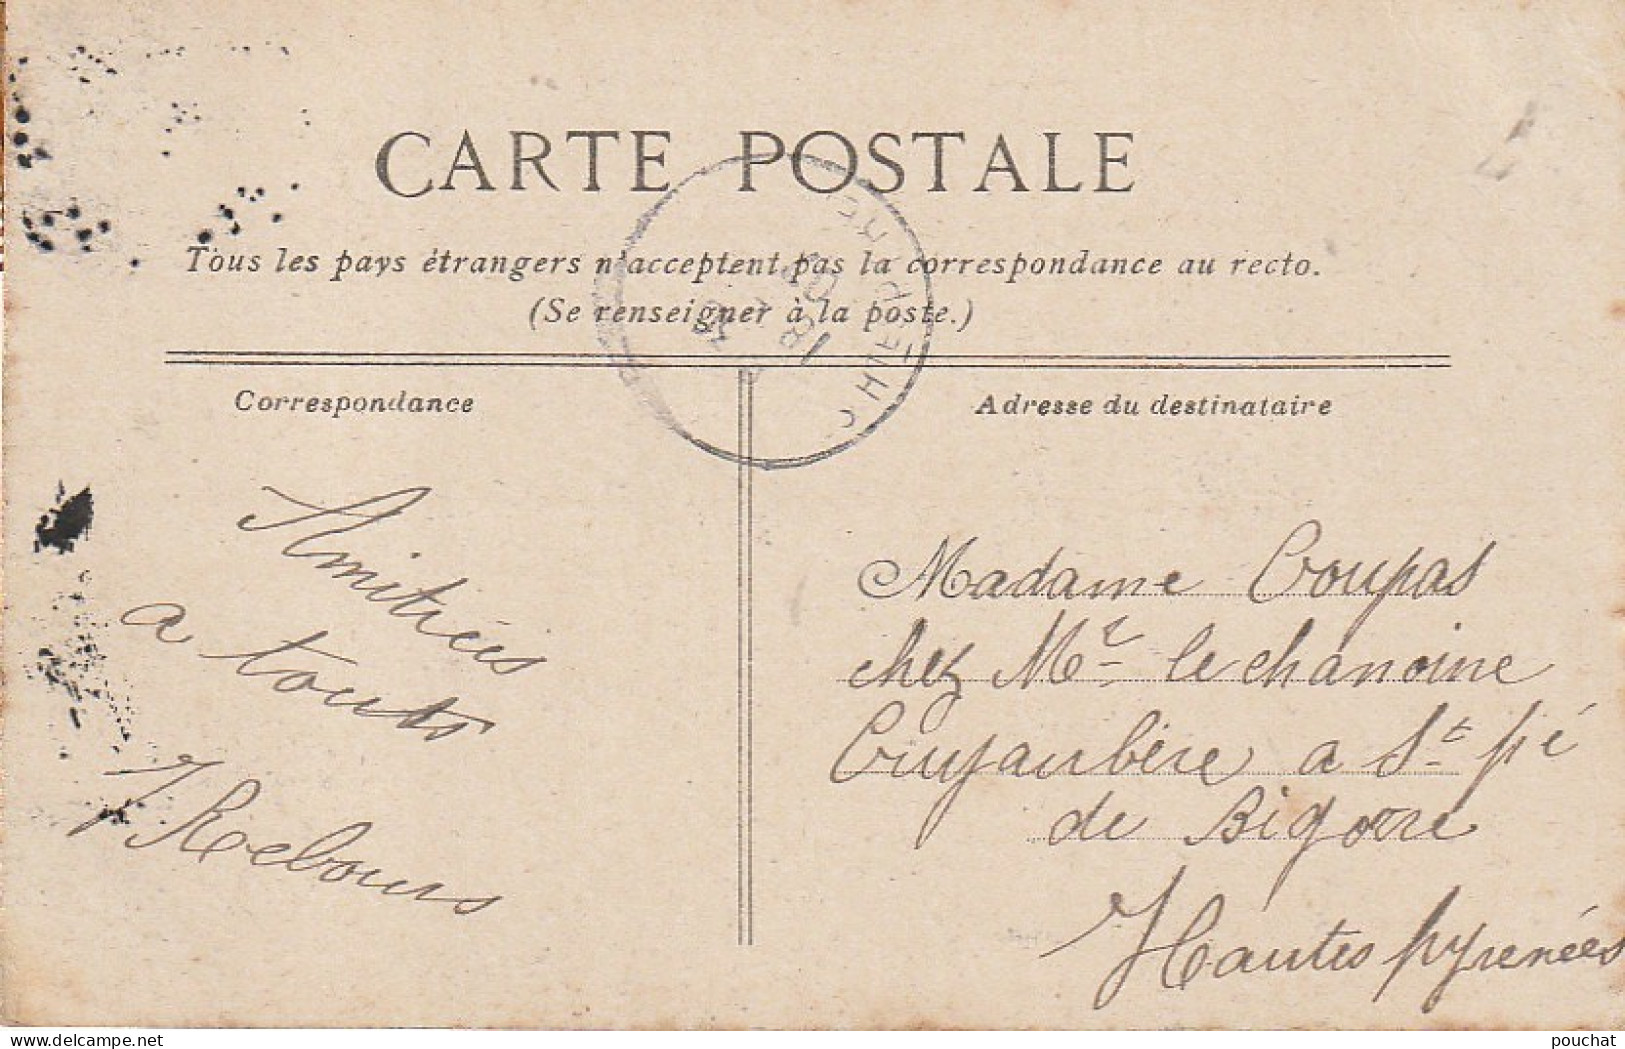 CARTE POSTALE
Tous les pays étrangers n'acceptent pas la correspondance au recto.
(Se renseigner à la poste.)
Correspondance
Adresse du destinataire
Amitiés
a touts
Rebours
Madame Coupas
chez Mr le chanoine
Cujaubère a St pé
de Bigorre
Hautes pyrenées
pouchat